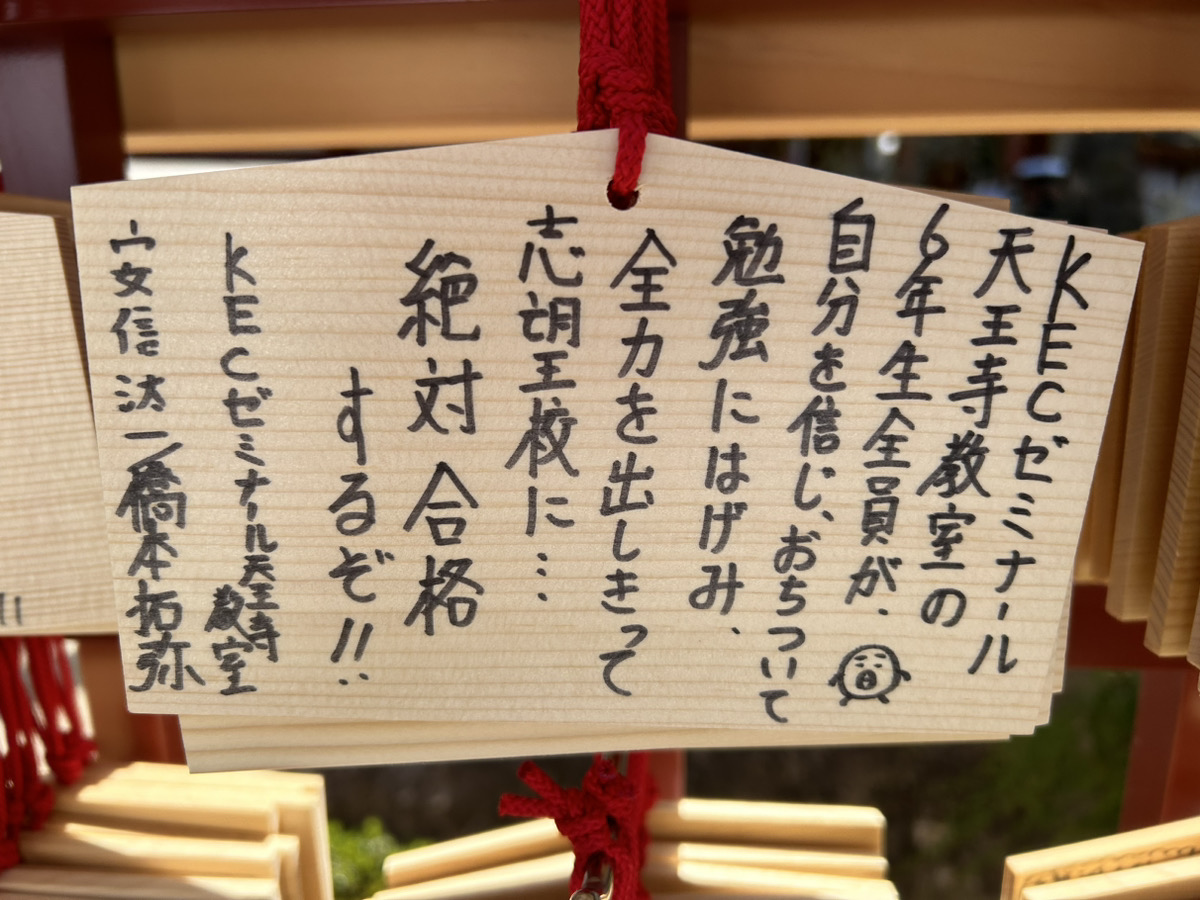 KECゼミナール
天王寺教室の
6年生全員が、
自分を信じ、おちついて
勉強にはげみ、
全力を出しきって
志望校に…
絶対合格
するぞ!!
KECゼミナール天王寺教室
安信汰一/橋本拓弥